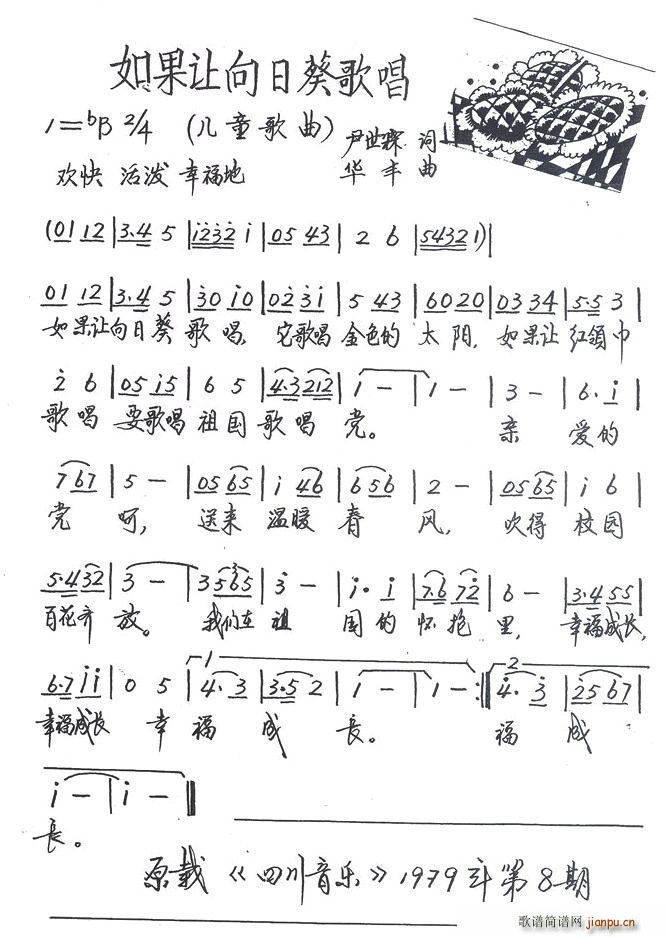 如果让向日葵歌唱
1=ᵇB 2/4 (儿童歌曲) 尹世霖 词
欢快 活泼 幸福地 华丰 曲
(01 12 | 3·4 5 | i232 i | 05 43 | 2 6 | 54321) |
01 12 | 3·4 5 | 30 i0 | 023i | 5 43 | 6020 | 03 34 | 5·5 3 |
如果让向日葵 歌唱, 它歌唱 金色的 太阳, 如果让 红领巾
2 6 | 05 i5 | 6 5 | 4·3 212 | i - | i - | 3 - | 6· i |
歌唱 要歌唱 祖国 歌唱 党。 亲 爱的
7 67 | 5 - | 05 65 | i 46 | 6 56 | 2 - | 05 65 | i 6 |
党 呵, 送来 温暖 春 风, 吹得 校园
5·4 32 | 3 - | 35 365 | 3 - | i· i | 7·6 72 | 6 - | 3·4 55 |
百花齐 放。 我们在 祖 国的 怀抱 里, 幸福成长,
6·7 ii | 0 5 | 1 4· 3 | 3·5 2 | i - | i - :‖ 2 4· 3 | 25 67 |
幸福成长 幸 福 成 长。 福 成
i - | i - ‖
长。
原载《四川音乐》1979年第8期
歌谱简谱网
jianpu.cn